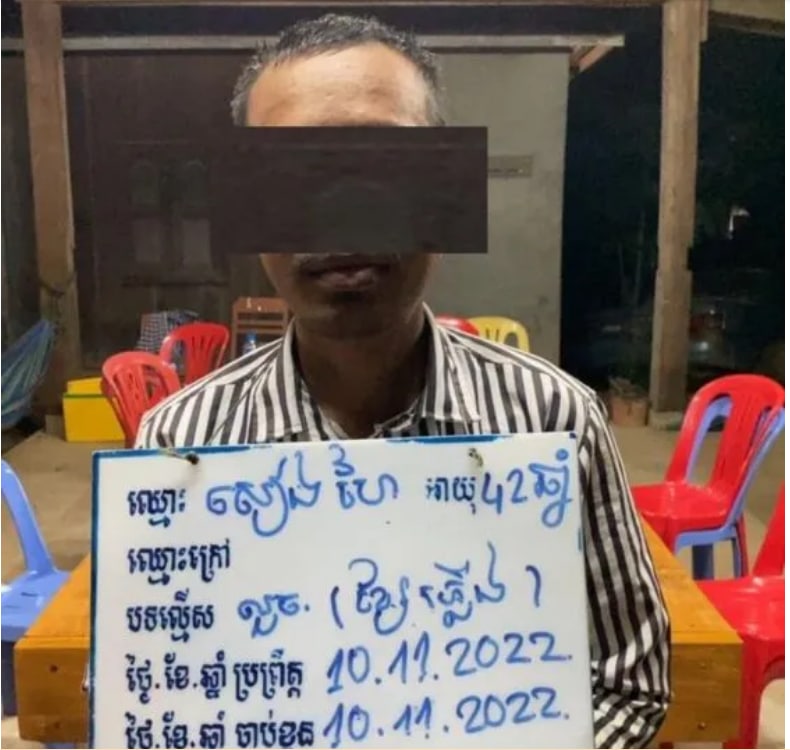 ឈ្មោះ សៀង ហៃ អាយុ 42 ឆ្នាំ
ឈ្មោះក្រៅ
បទល្មើស លួច. (ខ្សែភ្លើង)
ថ្ងៃ.ខែ.ឆ្នាំ ប្រព្រឹត្ត 10.11.2022.
ថ្ងៃ.ខែ.ឆ្នាំ ចាប់ខ្លួន 10.11.2022.